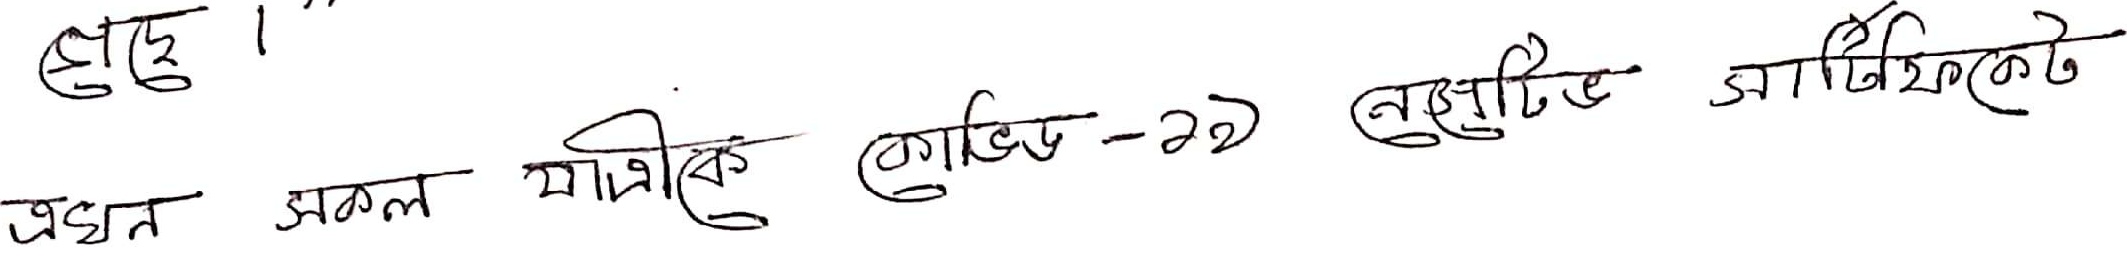 হচ্ছে।"
এখন সকল যাত্রীকে কোভিড-১৯ নেগেটিভ সার্টিফিকেট